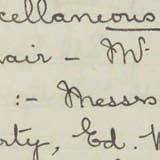 cellaneous
air - Mr.
:- Messrs
rty, Ed. W